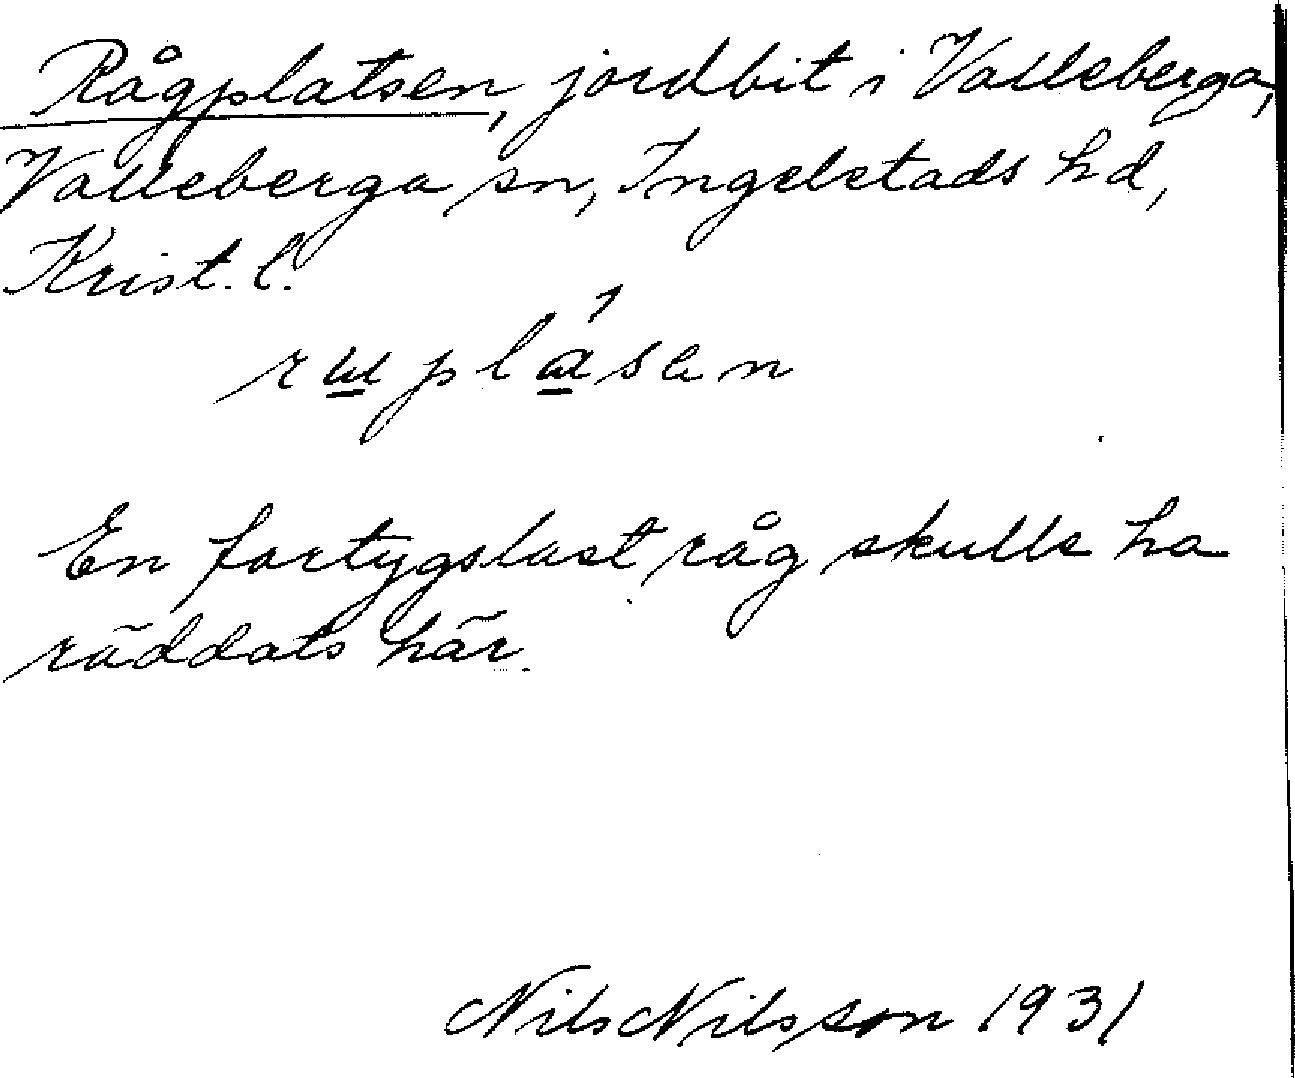 Rågplatsen, jordbit i Valleberga,
Valleberga sn, Ingelstads hd,
Krist. l.
En fartygslast råg skulle ha
räddats här.
Nils Nilsson 1931